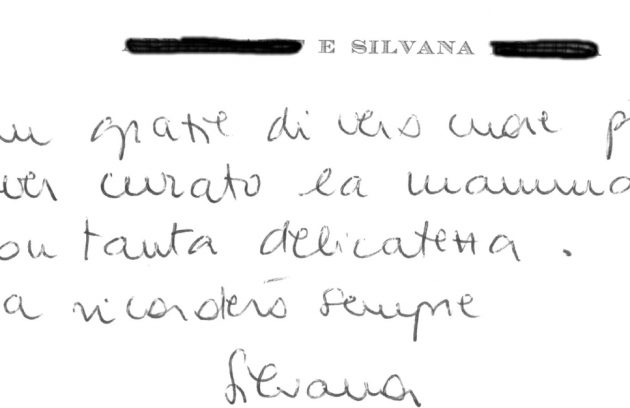 E SILVANA
un grazie di vero cuore p
ver curato la mamma
on tanta delicatezza.
a ricorderò sempre
Silvana